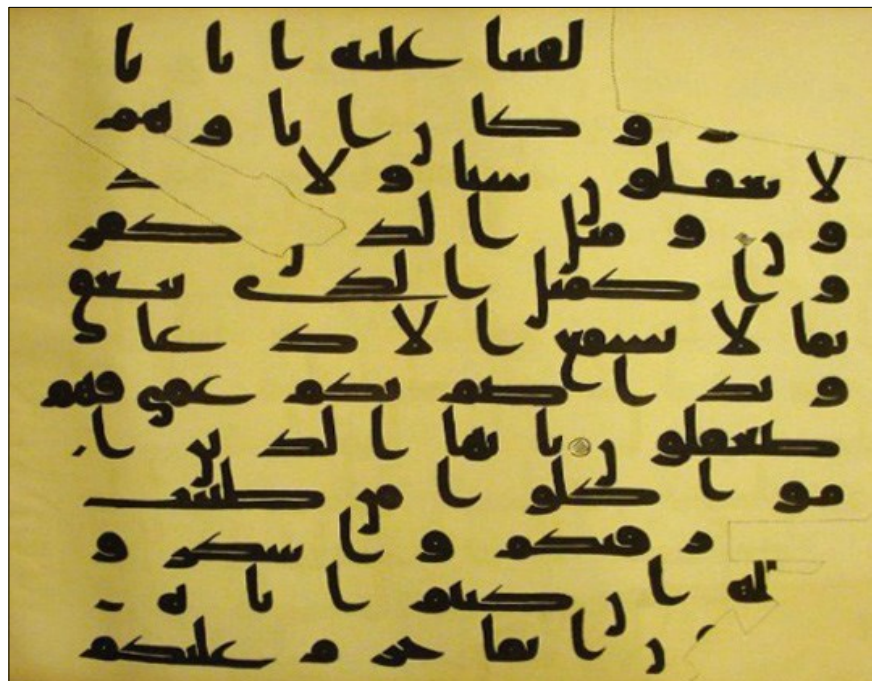 لفينا عليه ابا نا
و كان اباوهم
لا يعقلون شيا ولا
ون ومثل الذين كفر
وا كمثل الذي ينعق
بما لا يسمع الا دعا
وندا صم بكم عمي فهم
لا يعقلون يايها الذين ا
منوا كلوا من طيبت
رزقنكم واشكروا
لله ان كنتم اياه
ن انما حرم عليكم